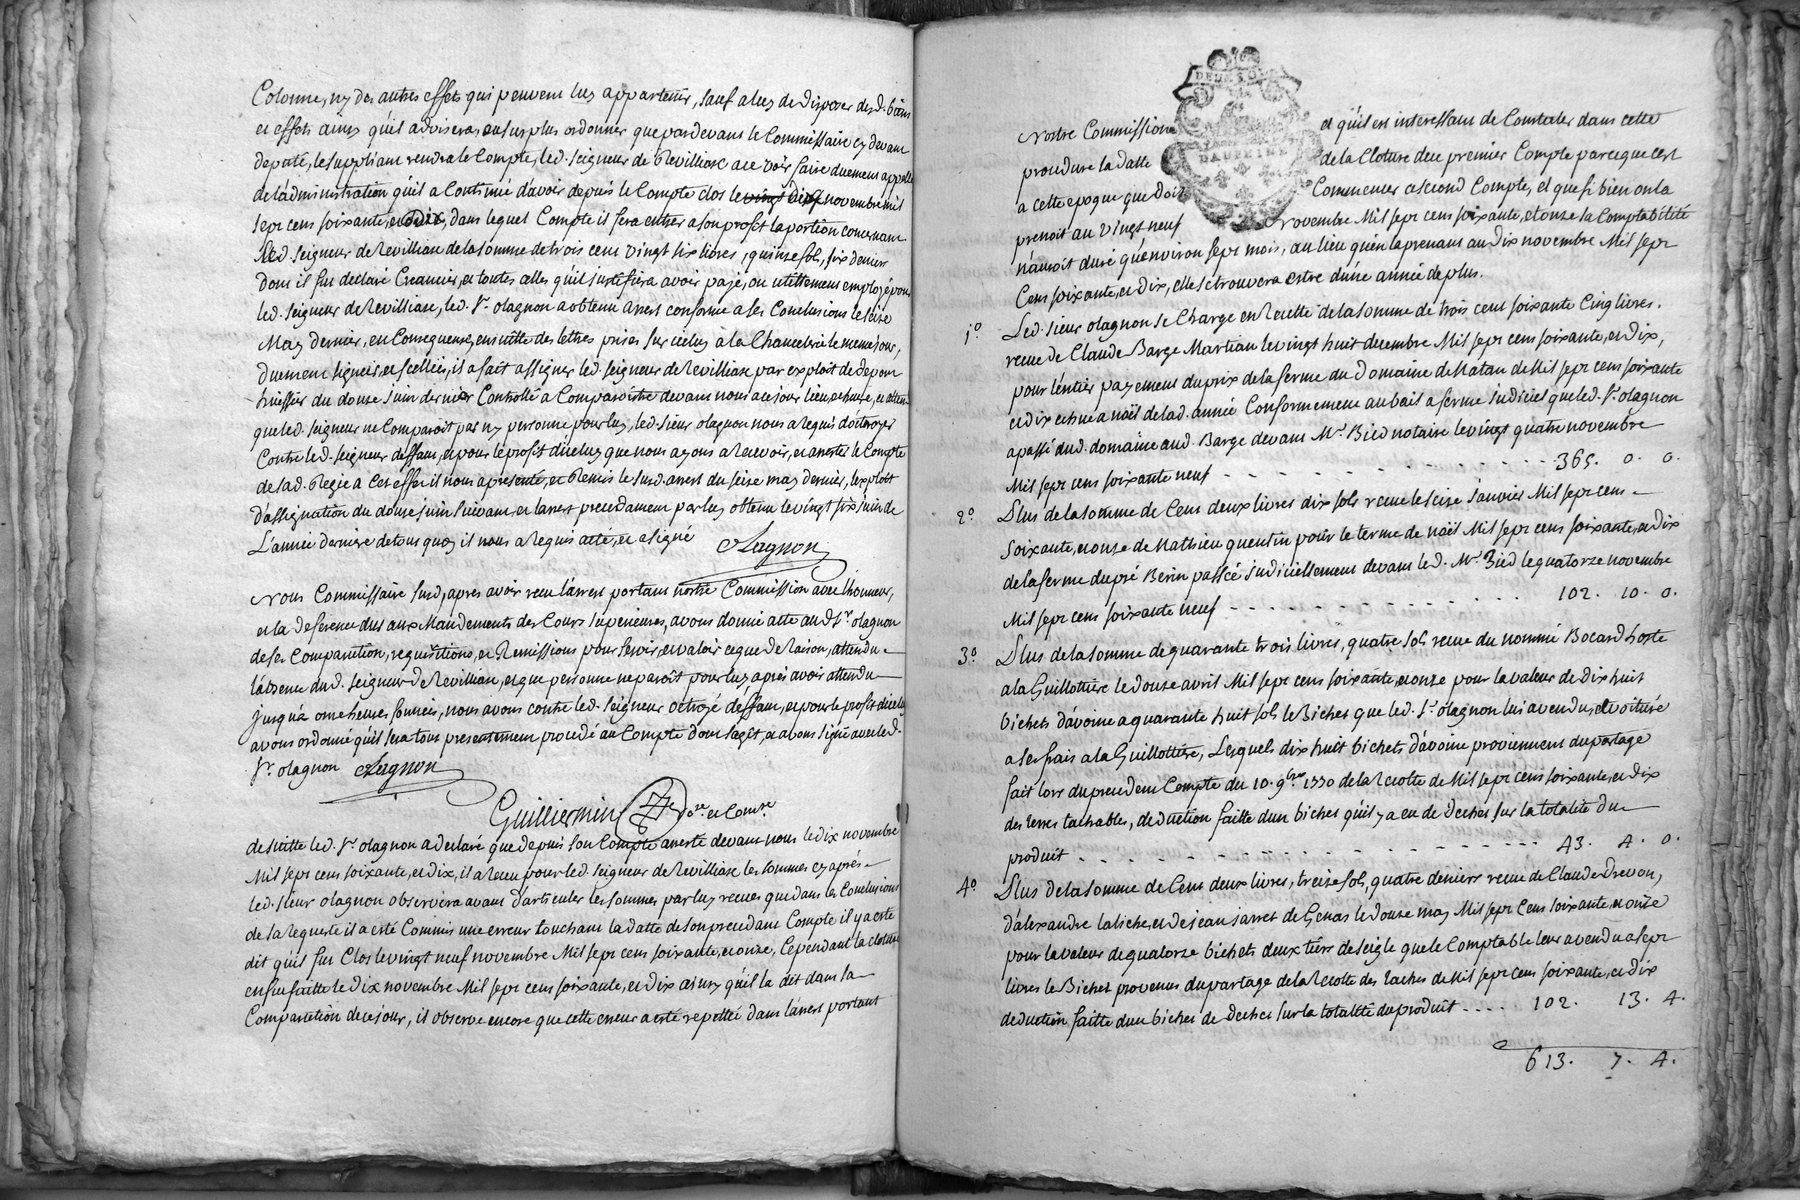 Colonne, ny des autres effets qui peuvent luy appartenir, sauf a luy de disposer desd. biens
et effets ainsy qu'il advisera, au surplus ordonner que pardevant le Commissaire cy devant
deputé, le suppliant rendra le Compte, led. seigneur de Revilliase a ce voir faire duement appellé
de l'administration qu'il a Continué d'avoir depuis le Compte clos le vingt neuf novembre mil
sept cens soixante, et dix, dans lequel Compte il fera entrer a son profit la portion concernant
led. seigneur de Revilliase de la somme de trois cent vingt six livres, quinze sols, six deniers
dont il fut declaré Creancier, et toutes celles qu'il justifiera avoir payé, ou utillement employé pour
led. seigneur de Revilliase, led. Sr. olagnon a obtenu arrest conforme a ses Conclusions le seize
May dernier, en Consequence, ensuitte des lettres prises sur iceluy a la Chancelerie le meme jour,
duement signées, et scellées, il a fait assigner led. seigneur de Revilliase par exploit de depom
huissier du douze juin dernier Controllé a Comparoitre devant nous a ce jour lieu, et heure, et atten-
que led. seigneur ne Comparoit pas ny personne pour luy, led. sieur olagnon nous a requis d'octroyer
Contre led. seigneur deffaut, et pour le profit d'iceluy que nous ayons a recevoir, et arrester le Compte
de sad. Regie a Cet effet il nous a presenté, et Remis le susd. arrest du seize may dernier, l'exploit
d'assignation du douze juin suivant, et larrest precedament par luy obtenu le vingt six juin de
L'année derniere de tout quoy il nous a requis acté, et a signé Olagnon
Nous Commissaire susd., apres avoir receu l'arrest portant nostre Commission avec l'honneur,
et la deference dus aux Mandements des Cours superieures, avons donné acte aud. Sr. olagnon
de ses Comparution, requisitions, et Remissions pour servir, et valoir ce que de raison, attendu
l'absence dud. seigneur de Revilliase, et que personne ne paroit pour luy apres avoir attendu
jusqu'a onze heures sonnées, nous avons contre led. seigneur octroyé deffaut, et pour le profit d'iceluy
avons ordonné qu'il sera tout presentement procedé au Compte dont s'agit, et avons signé avec led.
Sr. olagnon Olagnon
Guilliermin
de suitte led. Sr. olagnon a declaré que depuis son Compte aresté devant nous le dix novembre
Mil sept cens soixante, et dix, il a receu pour led. seigneur de Revilliase les sommes cy après
led. sieur olagnon observera avant d'articuler les sommes par luy receues que dans les Conclusions
de sa requeste il a esté Commis une erreur touchant la datte de son precedant Compte il y a esté
dit qu'il fut Clos le vingt neuf novembre Mil sept cens soixante, et onze, Cependant la cloture
en fut faitte le dix novembre Mil sept cens soixante, et dix ainsy qu'il la dit dans sa
Comparution de ce jour, il observe encore que cette erreur a esté repettée dans l'arrest portant
DEUX SOLS
DAUPHINE
Nostre Commission et qu'il est interessant de Constater dans cette
procedure la datte de la Cloture du premier Compte parce que c'est
a cette epoque que doit Commencer ce second Compte, et que si bien on la
prenoit au vingt neuf Novembre Mil sept cens soixante, et onze la Comptabilité
n'auroit duré qu'environ sept mois, au lieu qu'en la prenant au dix novembre Mil sept
Cens soixante, et dix, elle se trouvera estre d'une année de plus.
1o. Led. sieur olagnon se Charge en Recette de la somme de trois cent soixante Cinq livres.
receue de Claude Barge Martian le vingt huit decembre Mil sept cens soixante, et dix,
pour l'entier payement du prix de la ferme du Domaine de Matan de Mil sept cens soixante
et dix echue a noël de lad. année Conformement au bail a ferme judiciel que led. Sr. olagnon
a passé dud. domaine aud. Barge devant Mr. Bied notaire le vingt quatre novembre
Mil sept cens soixante neuf - - - - - - - - - 365. 0. 0.
2o. Plus de la somme de Cent deux livres dix sols receue le seize janvier Mil sept cens
soixante, et onze de Mathieu quentin pour le terme de noël Mil sept cens soixante, et dix
de la ferme du pré Berin passée judiciellement devant led. Mr. Bied le quatorze novembre
Mil sept cens soixante neuf - - - - - - - - - 102. 10. 0.
3o. Plus de la somme de quarante trois livres, quatre sols receue du nommé Bocard hoste
a la Guillottiere le douze avril Mil sept cens soixante, et onze pour la valeur de dix huit
bichets d'avoine a quarante huit sols le Bichet que led. Sr. olagnon lui a vendu, et voituré
a ses frais a la Guillottiere, Lesquels dix huit bichets d'avoine proviennent du partage
fait lors du precedent Compte du 10. 9bre 1770 de la recolte de Mil sept cens soixante, et dix
des terres tachables, deduction faitte d'un bichet qu'il y a eu de dechet sur la totalité du
produit - - - - - - - - - 43. 4. 0.
4o. Plus de la somme de Cent deux livres, treize sols, quatre deniers receue de Claude Drevon,
d'alexandre laliche, et de jean jarret de Genas le douze may Mil sept Cens soixante, et onze
pour la valeur de quatorze bichets deux tiers de seigle que le Comptable leur a vendu a sept
livres le Bichet provenus du partage de la Recolte des taches de Mil sept cens soixante, et dix
deduction faitte d'un bichet de dechet sur la totalité du produit .... 102. 13. 4.
613. 7. 4.